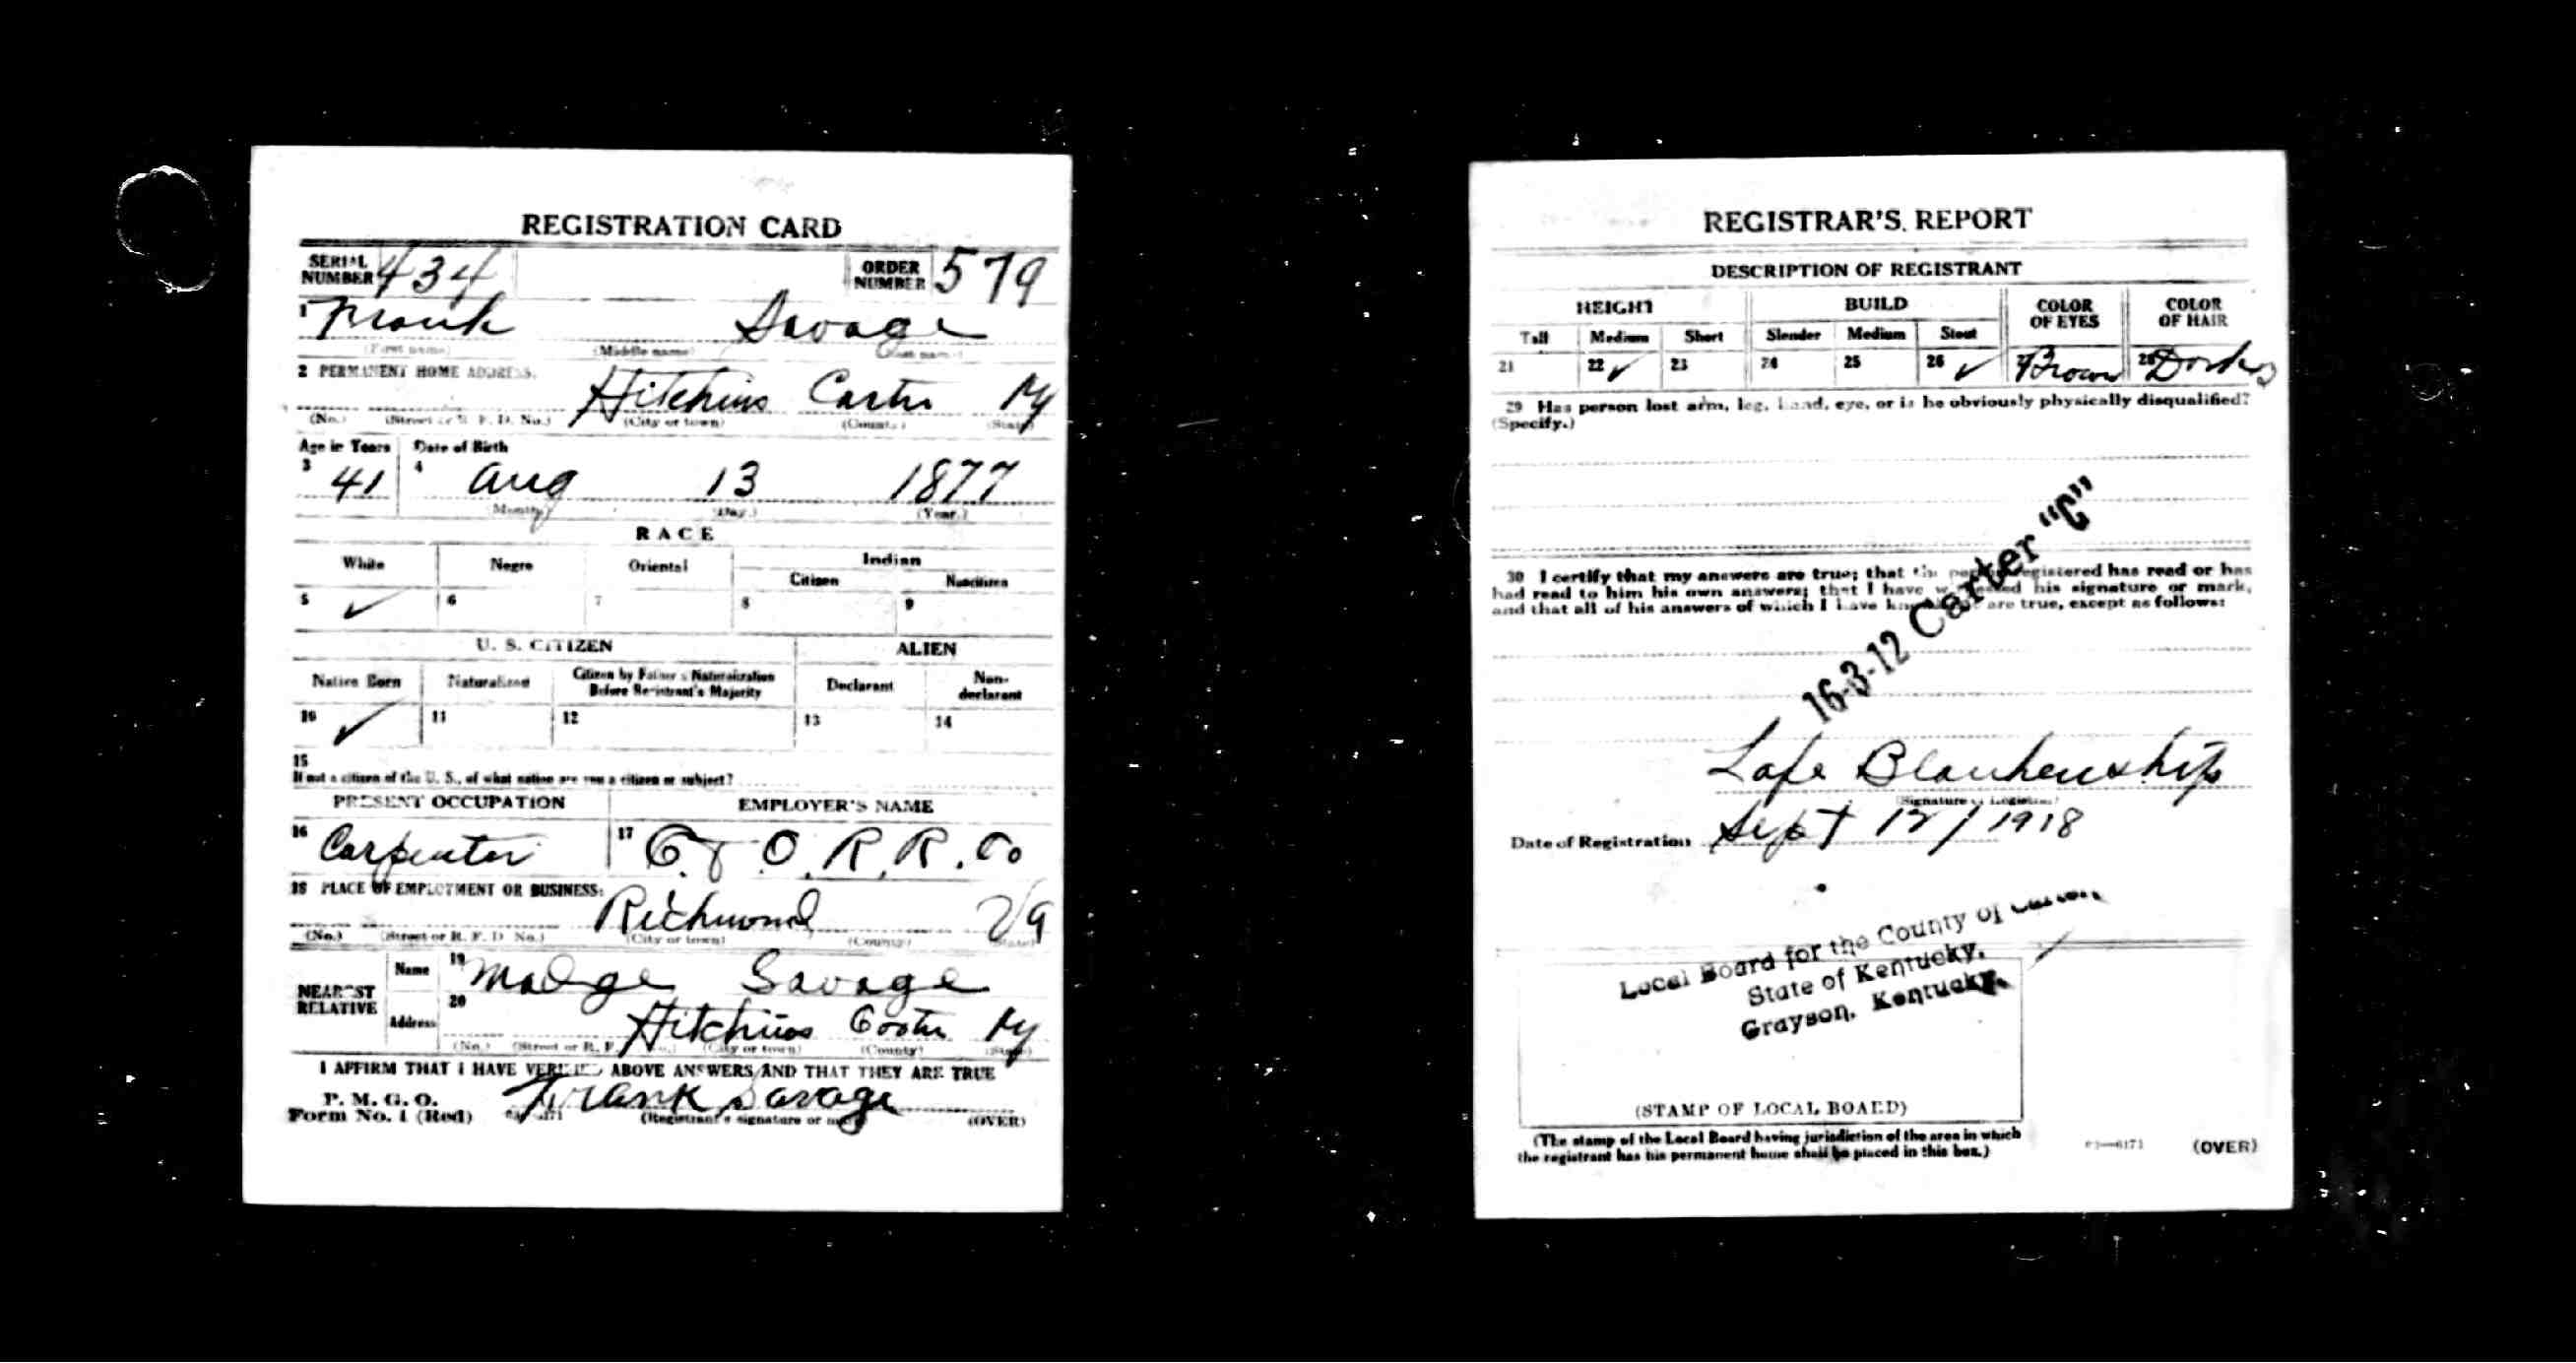 REGISTRATION CARD
SERIAL NUMBER 434 ORDER NUMBER 579
1 Frank Savage
(First name) (Middle name) (Last name)
2 PERMANENT HOME ADDRESS:
Hitchins Carter Ky
(No.) (Street or R. F. D. No.) (City or town) (County) (State)
Age in Years Date of Birth
3 41 4 Aug 13 1877
(Month.) (Day.) (Year.)
RACE
White Negro Oriental Indian
Citizen Noncitizen
5 ✓ 6 7 8 9
U. S. CITIZEN ALIEN
Native Born Naturalized Citizen by Father's Naturalization Before Registrant's Majority Declarant Non-declarant
10 ✓ 11 12 13 14
15
If not a citizen of the U. S., of what nation are you a citizen or subject?
PRESENT OCCUPATION EMPLOYER'S NAME
16 Carpenter 17 C & O. R. R. Co
18 PLACE OF EMPLOYMENT OR BUSINESS:
Richmond Va
(No.) (Street or R. F. D. No.) (City or town) (County) (State)
NEAREST RELATIVE
Name 19 Madge Savage
Address 20 Hitchins Carter Ky
(No.) (Street or R. F. D. No.) (City or town) (County) (State)
I AFFIRM THAT I HAVE VERIFIED ABOVE ANSWERS AND THAT THEY ARE TRUE
P. M. G. O.
Form No. 1 (Red) Frank Savage
(Registrant's signature or mark) (OVER)
REGISTRAR'S REPORT
DESCRIPTION OF REGISTRANT
HEIGHT BUILD COLOR OF EYES COLOR OF HAIR
Tall Medium Short Slender Medium Stout
21 22 ✓ 23 24 25 26 ✓ 27 Brown 28 Dark
29 Has person lost arm, leg, hand, eye, or is he obviously physically disqualified?
(Specify.)
30 I certify that my answers are true; that the person registered has read or has
had read to him his own answers; that I have witnessed his signature or mark,
and that all of his answers of which I have knowledge are true, except as follows:
16-3-12 Carter "C"
Lafe Blankenship
(Signature of Registrar)
Date of Registration Sept 12/1918
Local Board for the County of Carter,
State of Kentucky,
Grayson, Kentucky.
(STAMP OF LOCAL BOARD)
(The stamp of the Local Board having jurisdiction of the area in which
the registrant has his permanent home shall be placed in this box.)
03—6171 (OVER)